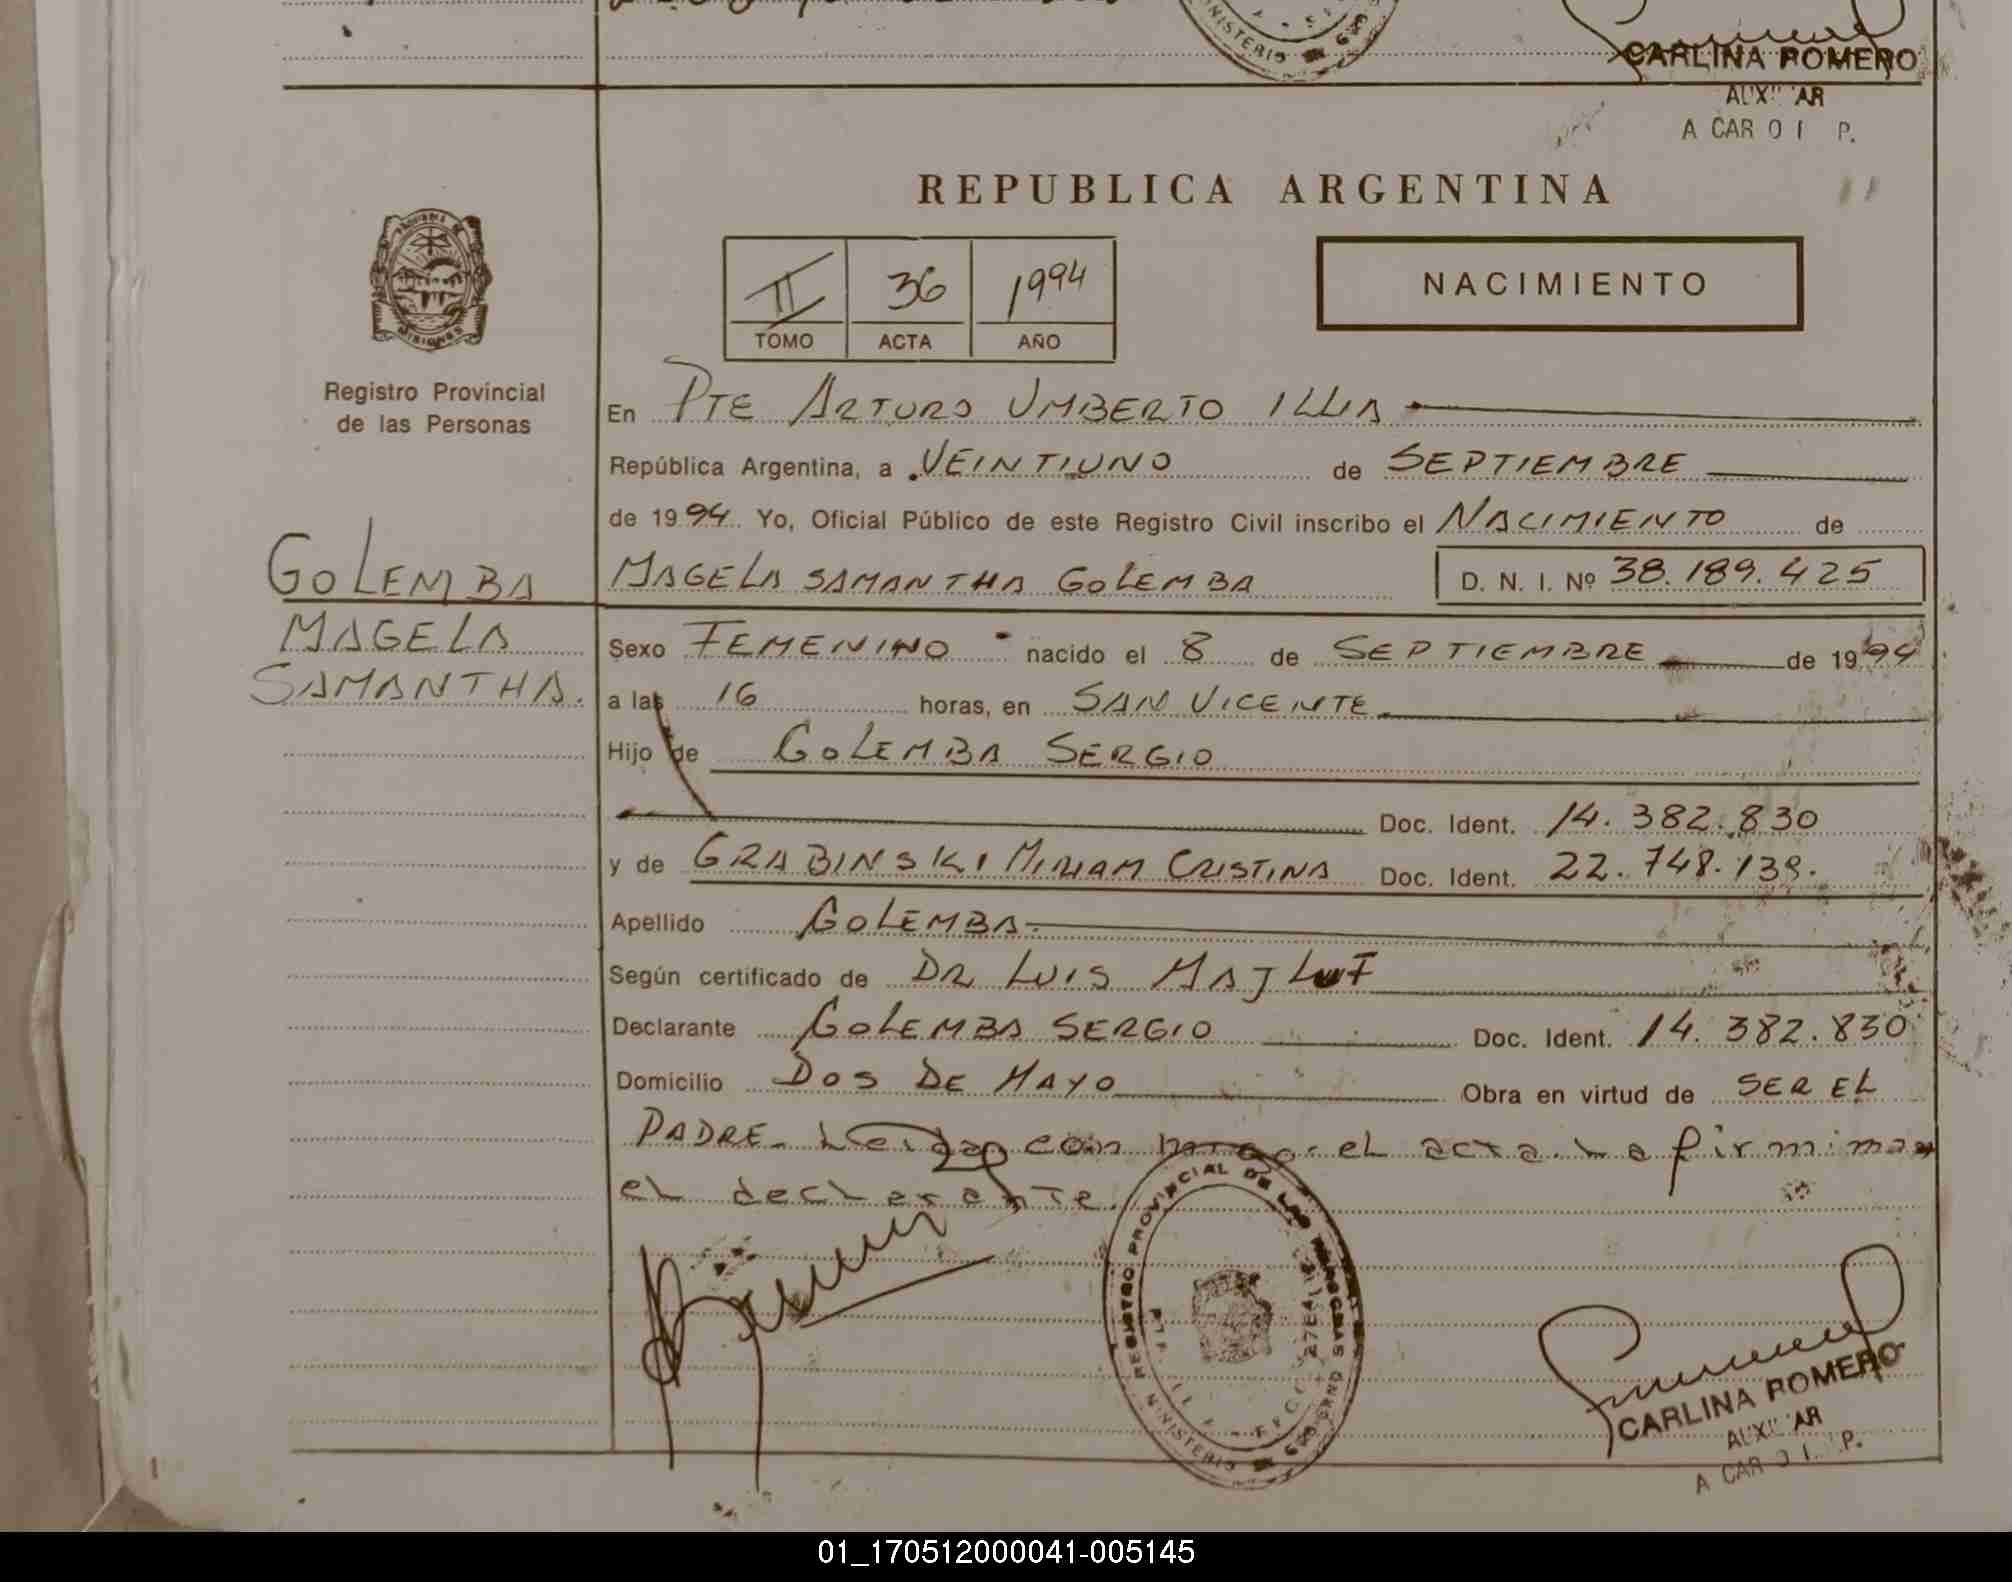 MINISTERIO
CARLINA ROMERO
AUXI AR
A CAR O I P.
REPUBLICA ARGENTINA
II 36 1994
TOMO ACTA AÑO
NACIMIENTO
MISIONES
Registro Provincial
de las Personas
En PTE ARTURO UMBERTO ILLIA
República Argentina, a VEINTIUNO de SEPTIEMBRE
de 1994. Yo, Oficial Público de este Registro Civil inscribo el NACIMIENTO de
MAGELA SAMANTHA GOLEMBA D. N. I. Nº 38.189.425
GOLEMBA
MAGELA
SAMANTHA.
Sexo FEMENINO nacido el 8 de SEPTIEMBRE de 1994
a las 16 horas, en SAN VICENTE
Hijo de GOLEMBA SERGIO
Doc. Ident. 14.382.830
y de GRABINSKI MIRIAM CRISTINA Doc. Ident. 22.748.139.
Apellido GOLEMBA
Según certificado de DR LUIS MAJLUF
Declarante GOLEMBA SERGIO Doc. Ident. 14.382.830
Domicilio DOS DE MAYO Obra en virtud de SER EL
PADRE. Leida con el acta. La firm
el declarante.
REGISTRO PROVINCIAL DE LAS PERSONAS
MINISTERIO
CARLINA ROMERO
AUXI AR
A CAR O I P.
01_170512000041-005145